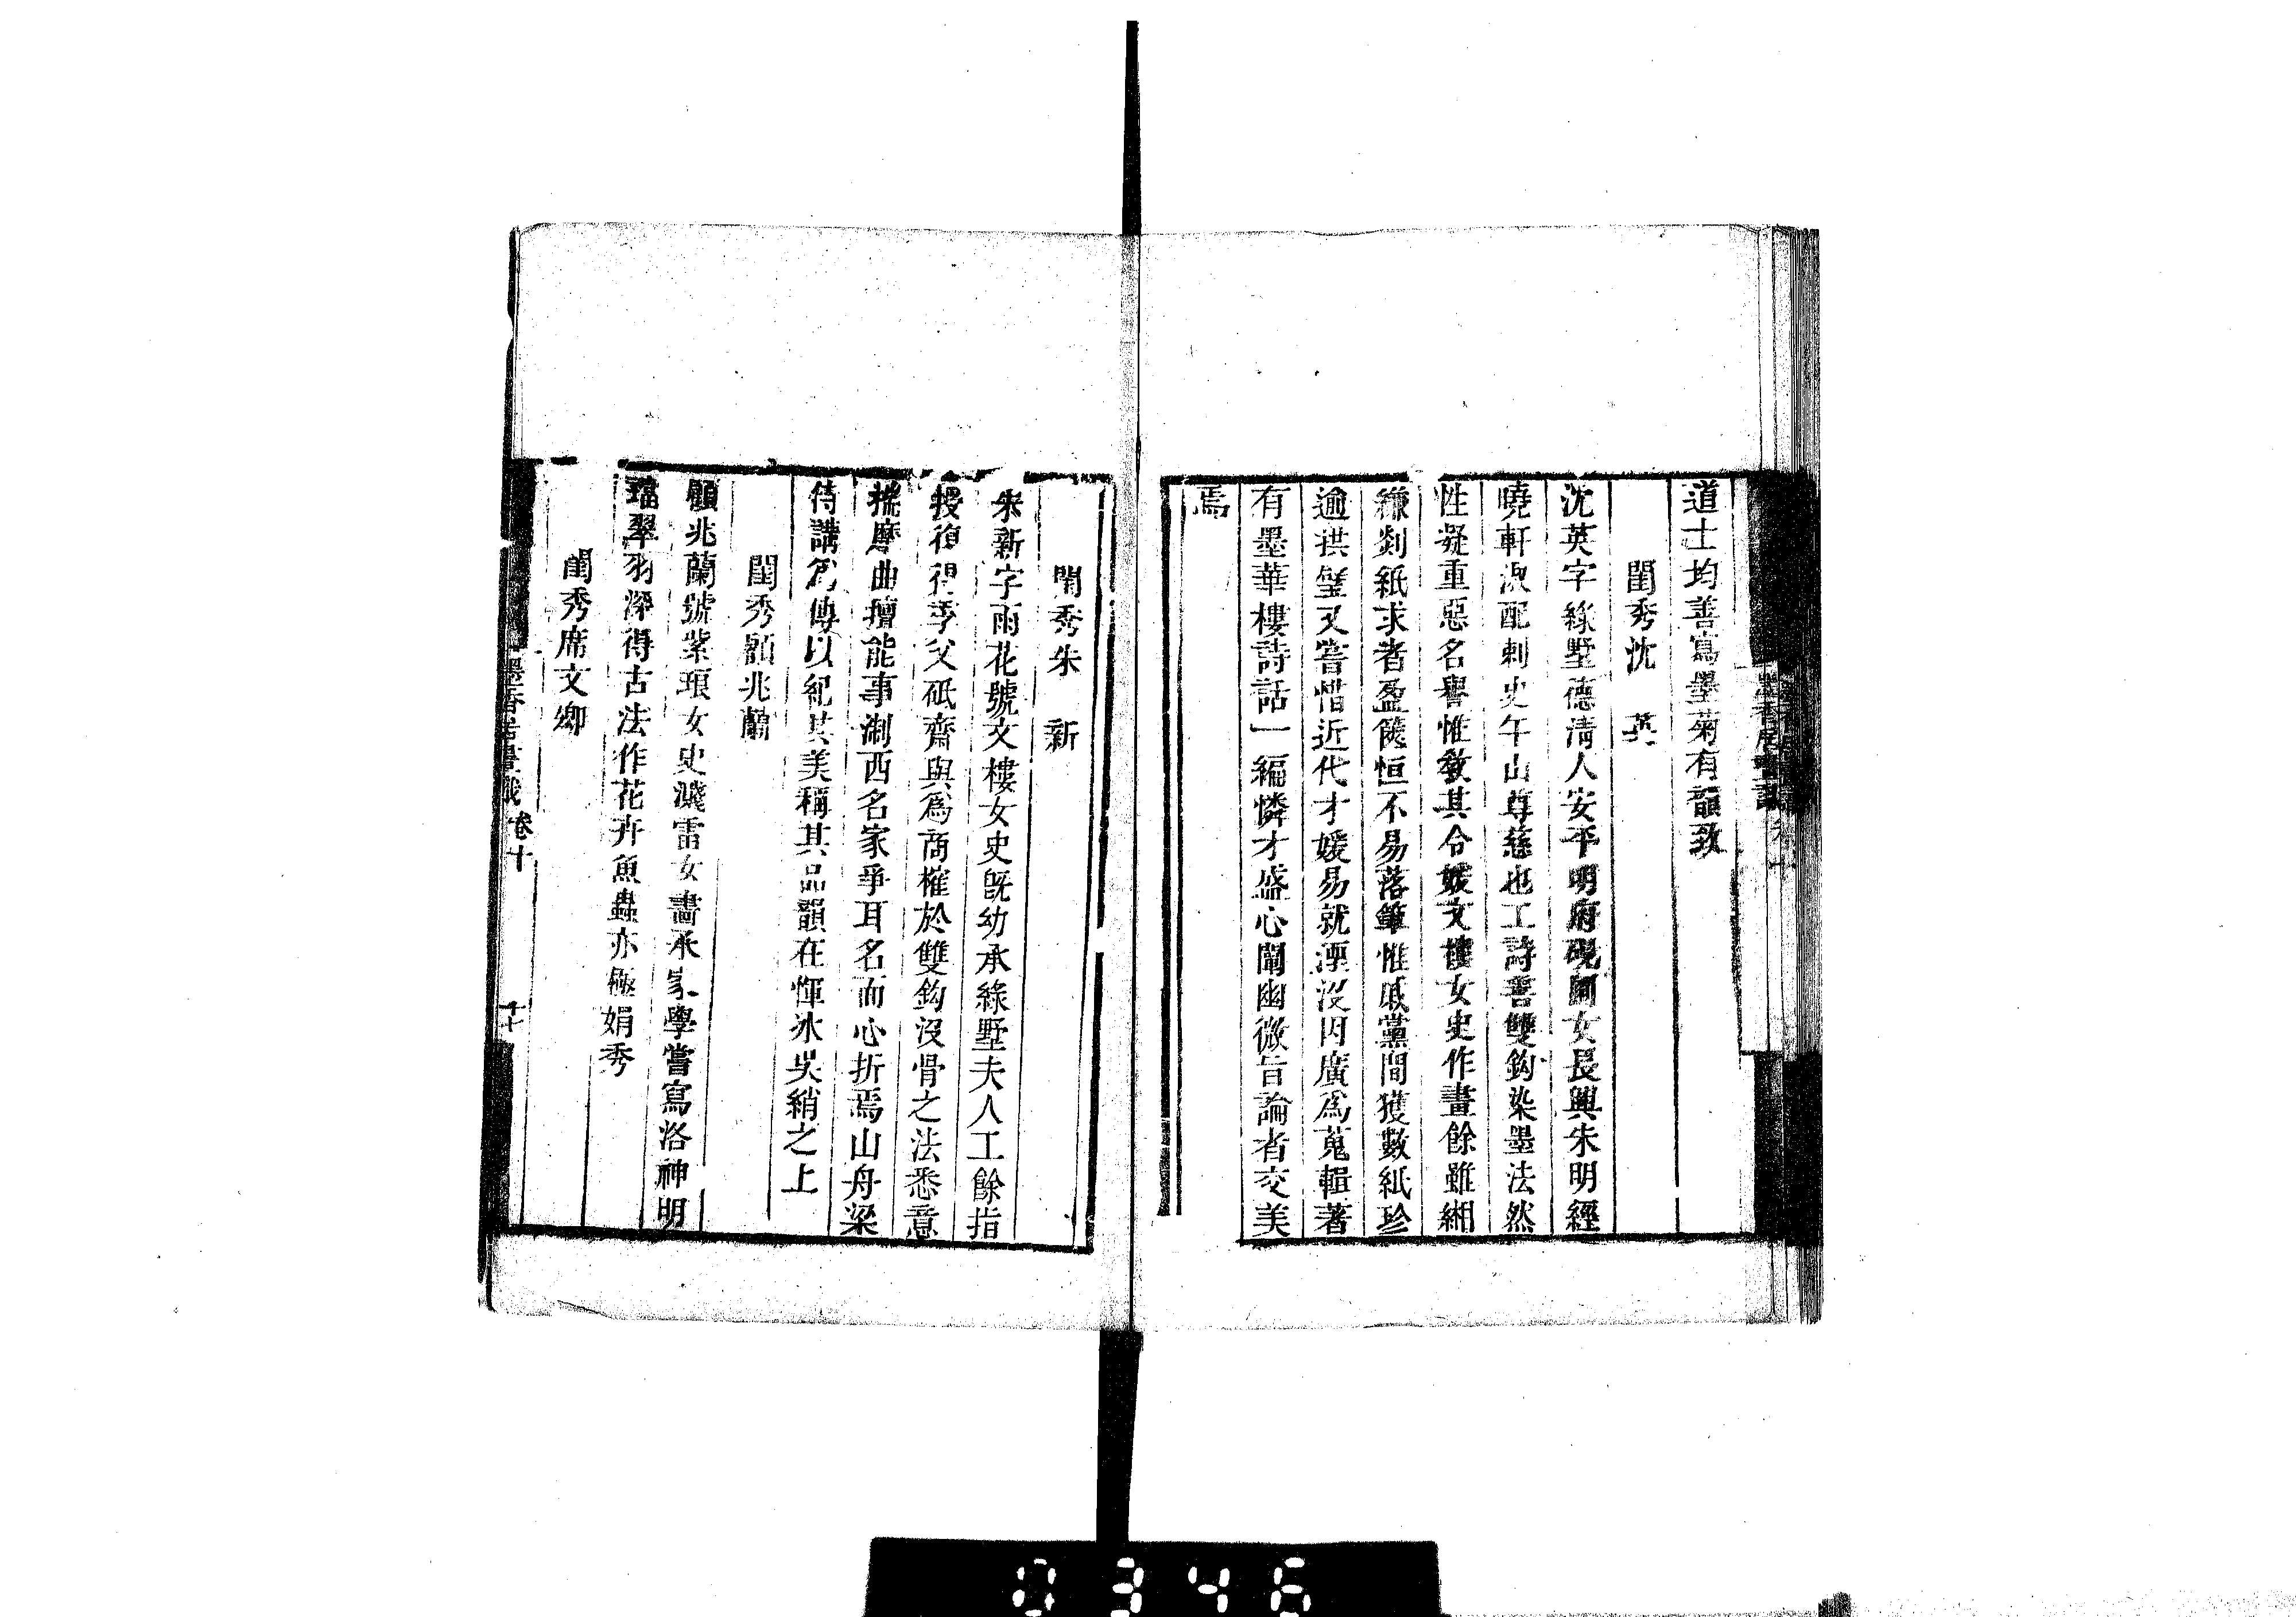 道士均善寫墨菊有韻致
閨秀沈 英
沈英字綠墅德淸人安平明府硯圃女長興朱明經
曉軒淑配刺史午山尊慈也工詩善雙鈎染墨法然
性凝重惡名譽惟敎其令媛文樓女史作畫餘雖緗
縑剡紙求者盈篋恒不易落筆惟戚黨間獲數紙珍
逾拱璧又嘗惜近代才媛易就湮沒因廣爲蒐輯著
有墨華樓詩話一編憐才盛心闡幽微旨論者交美
焉
閨秀朱 新
朱新字雨花號文樓女史旣幼承綠墅夫人工餘指
授復得季父砥齋與爲商榷於雙鈎沒骨之法悉意
揣摩曲擅能事浙西名家爭耳名而心折焉山舟梁
侍講爲傳以紀其美稱其品韻在惲冰吳綃之上
閨秀顧兆蘭
顧兆蘭號紫琅女史淺雷女畵承家學嘗寫洛神明
璫翠羽深得古法作花卉魚蟲亦極娟秀
閨秀席文卿
墨香居畫識 卷十 十七